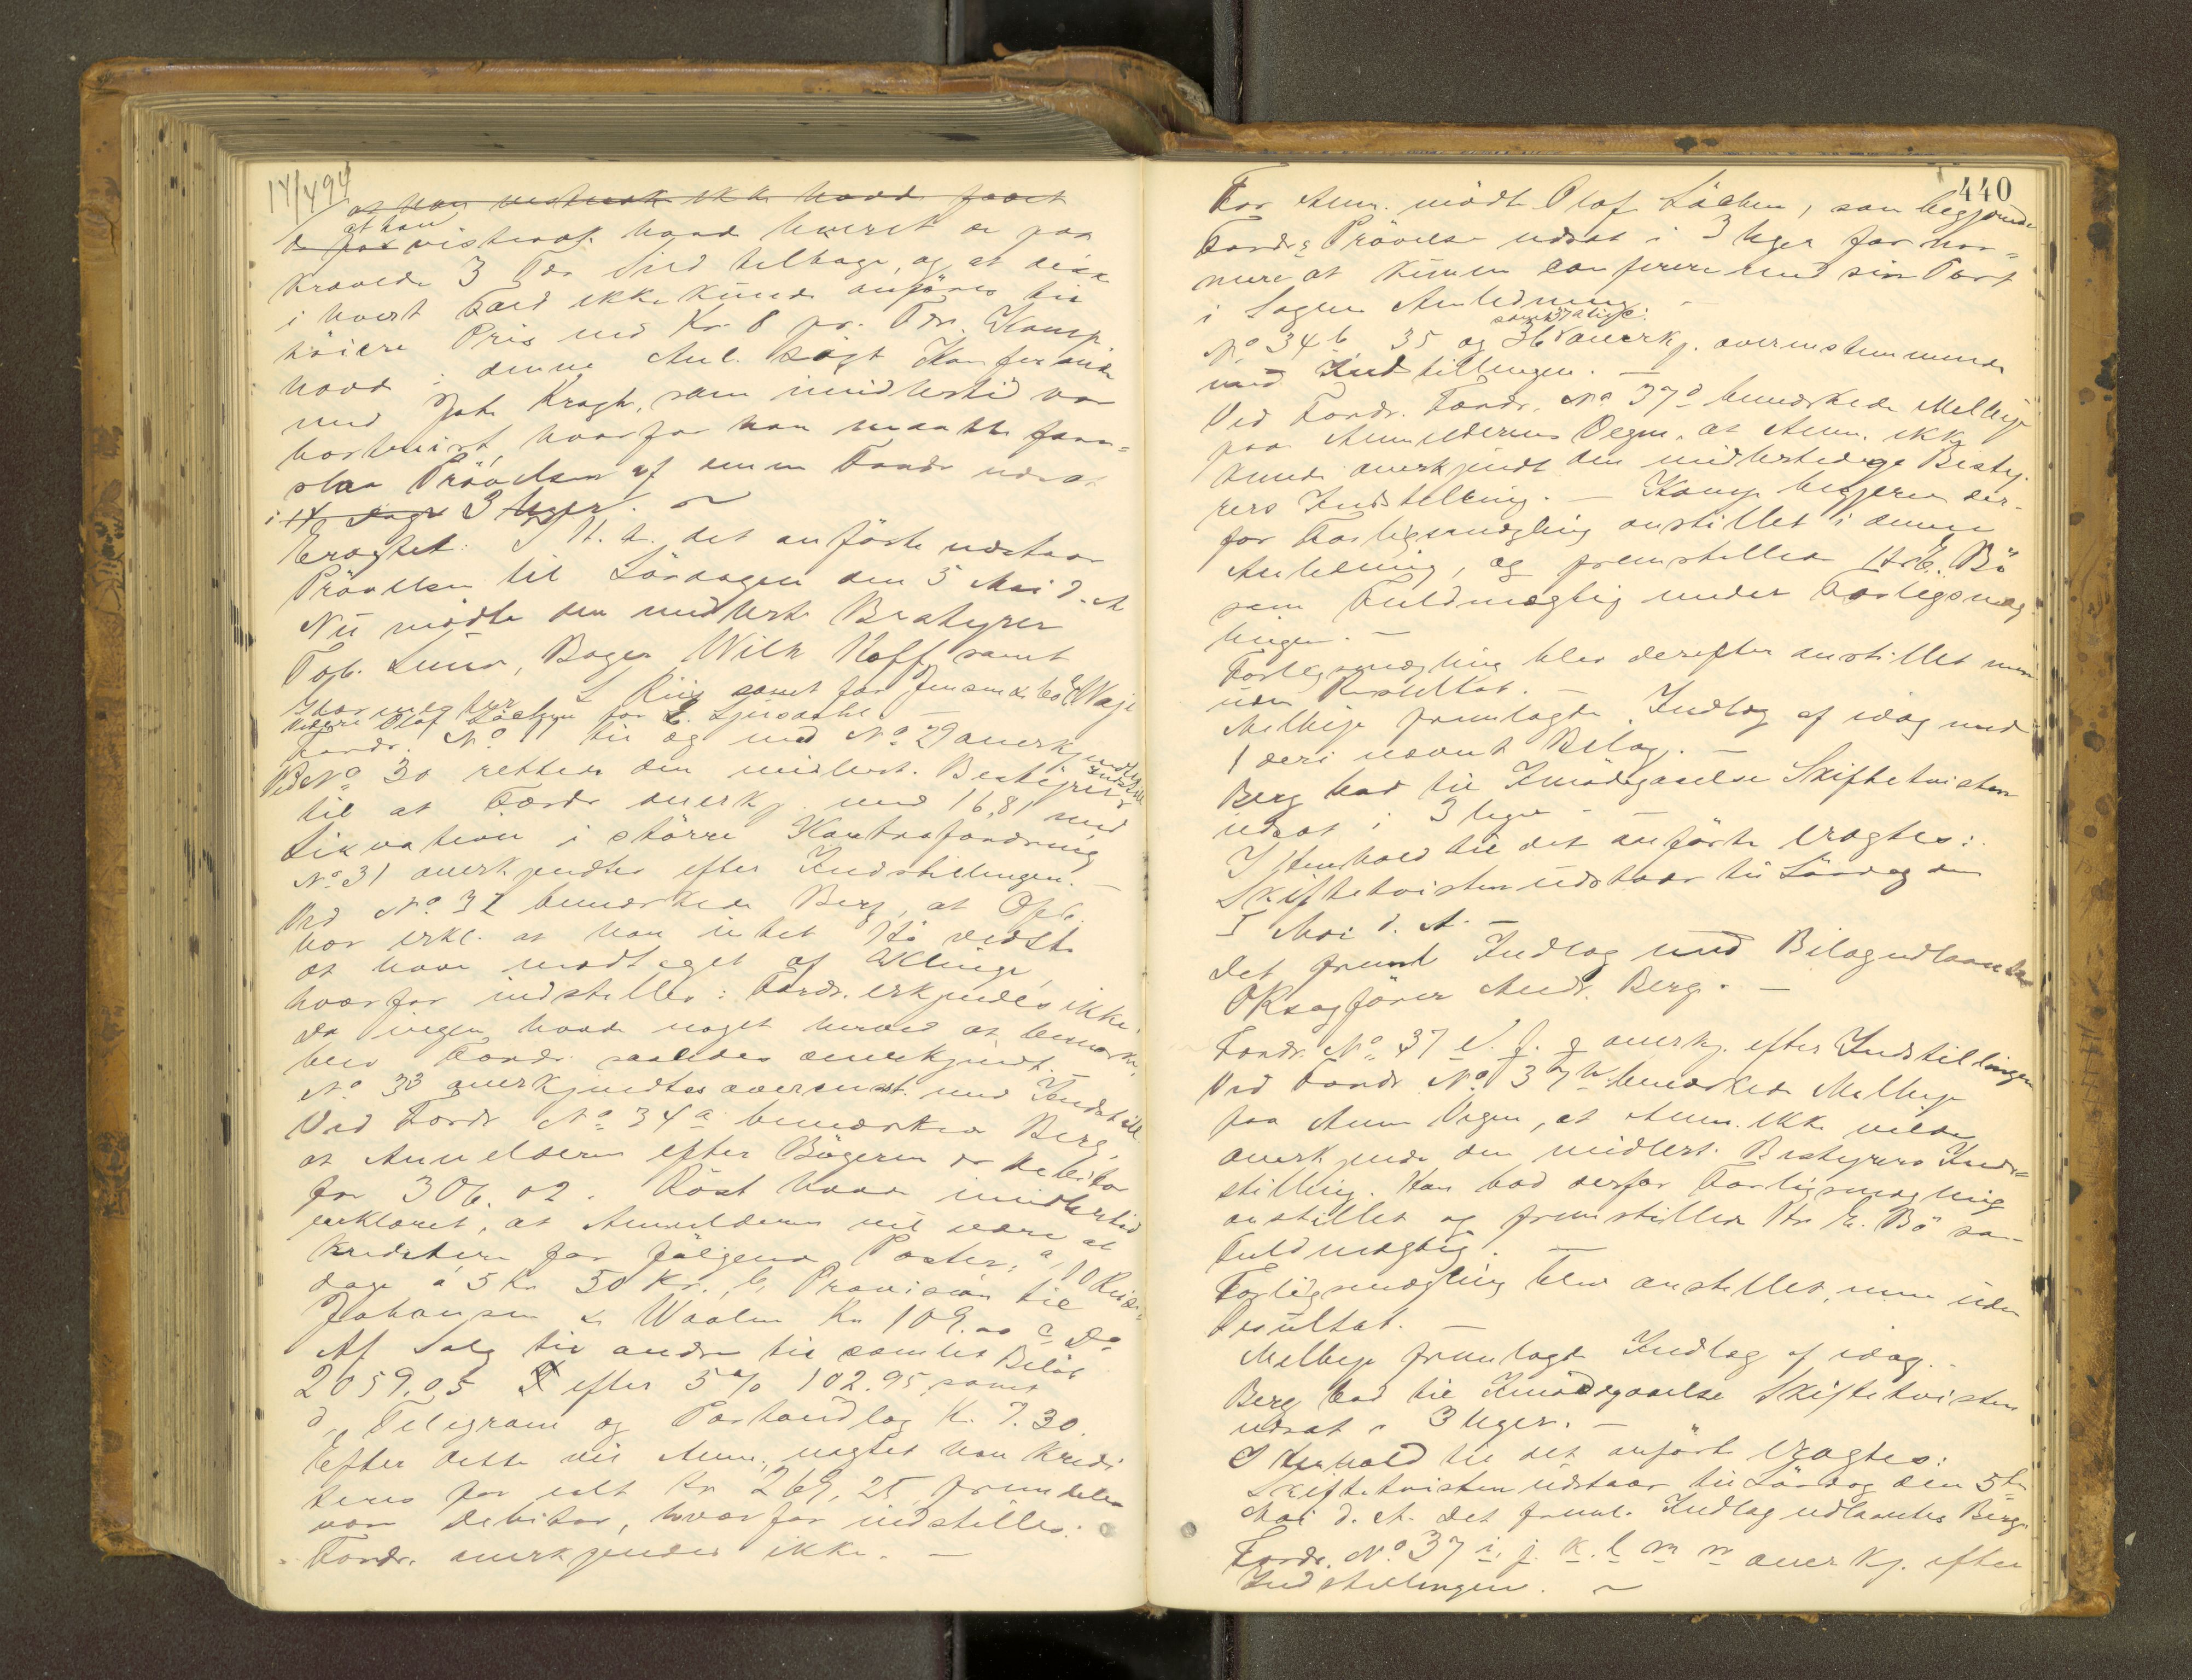 14/4 94
at han vistnok ikke havde faaet
at han
vistnok havde leveret en paa
krævede 3 Tdr Sild tilbage, og at disse
i hvert Fald ikke kunde anföres til
höiere Pris end Kr. 8 pr. Td. Kamp
havde i denne Anl. sögt Konferance
med Joh. Kragh, som imidlertid var
bortreist, hvorfor han maatte fore=
slaa Prövelsen af denne Fordr. udsat
i 14 Dage 3 Uger. ~
Eragtet: I H. t. det anförte udstaar
Prövelsen til Lördagen den 5 Mai d. A
Nu mödte den midlert. Bestyrer
Tob. Lund, Bager Wilh Hoff samt
L Riis samt for Jensen & Co
Videre Olaf Löchen for L. Ljusaahl.
Fordr. No 11 til og med No 29 anerkjendtes
Ved No 30 rettede den midlert. Bestyrer Indst.
til at Fordr anerkj. med 16,81 mod
Likvation i större Kontrafordring
No 31 anerkjendtes efter Indstillingen. —
Ved No 32 bemærkede Berg, at Opb.
har erkl. at han intet vidste
at have modtaget af Klinge,
hvorfor indstilles: Fordr. erkjendes ikke.
Da ingen havde noget herved at bemærke,
blev Fordr. saaledes anerkjendt.
No 33 anerkjendtes overenst. med Indstill.
Ved Fordr No 34a bemærker Berg,
at Anmelderen efter Bögerne er debitor
for 306.02. Röst havde imidlertid
erklæret, at Anmelderen vil være at
kreditere for fölgende Poster: a, 10 Reise=
dage á 5 Kr 50 Kr. b, Provision til
Johansen & Waalen Kr 109.00 c Do
Af Salg til andre til samlet Belöb
2059.05 efter 5% 102.95 samt
d, Telegram og Portoudlæg Kr. 7.30.
Efter dette vil Anm., uagtet han kredi
teres for ialt Kr 269,25, fremdeles
være debitor, hvorfor indstilles:
Fordr. anerkjendes ikke. —
440
For Anm. mödte Olaf Löchen, som begjærede
Fordr.s Prövelse udsat i 3 Uger for nær=
mere at kunne conferere med sin Part
i Sagens Anledning. —
samtlige:
No 34b, 35 og 36 anerkj. overenstemmende
med Indstillingen. —
Ved Fordr. No 37d bemærkede Melbye
paa Anmelderens Vegne, at Anm. ikke
kunde anerkjendt den midlertidige Besty.
rers Indstilling. — Kamp begjærede der-
for Forligsmægling anstillet i denne
Anledning, og fremstilled Hr E. Bö
som Fuldmægtig under Forligsmæg
lingen. —
Forligsmægling blev derefter anstillet men
uden Resultat. —
Melbye fremlagde Indlæg af idag med
1 deri nævnt Bilag. —
Berg bad til Imödegaaelse Skiftetvisten
udsat i 3 Uger —
I Henhold til det anförte eragtes:
Skiftetvisten udstaar til Lördag den
5 Mai d. A. —
Det freml. Indlæg med Bilag udlaantes
ORsagförer Andr. Berg. —
Fordr. No 37 e. f. g anerkj. efter Indstillingen
Ved Fordr No 37h bemærkede Melbye
paa Anm Vegne, at Anm. ikke vilde
anerkjende den midlert. Bestyrers Ind=
stilling. Han bad derfor Forligsmægling
anstillet og fremstilled Hr E. Bö som
Fuldmægtig. —
Forligsmægling blev anstillet, men uden
Resultat. —
Melbye fremlagde Indlæg af idag. —
Berg bad til Imödegaaelse Skiftetvisten
udsat i 3 Uger. —
I Henhold til det anförte eragtes:
Skiftetvisten udstaar til Lördag den 5te
Mai d. A. Det freml. Indlæg udlaantes Berg.
Fordr. No 37 i, j. k. l m n anerkj. efter
Indstillingen. ~